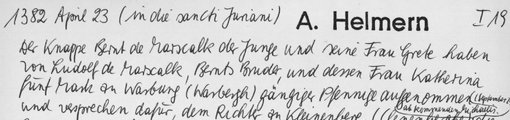 1382 April 23 (in die sancti Juriani) A. Helmern I 19
Der Knappe Bernt de Marscalk der Junge und seine Frau Grete haben
von Ludolf de Marscalk, Bernts Bruder, und dessen Frau Katherina
fünf Mark zu Warburg (Warbergh) gängiger Pfennige aufgenommen
ab kommenden Michaelis
und versprechen dafür, dem Richter zu